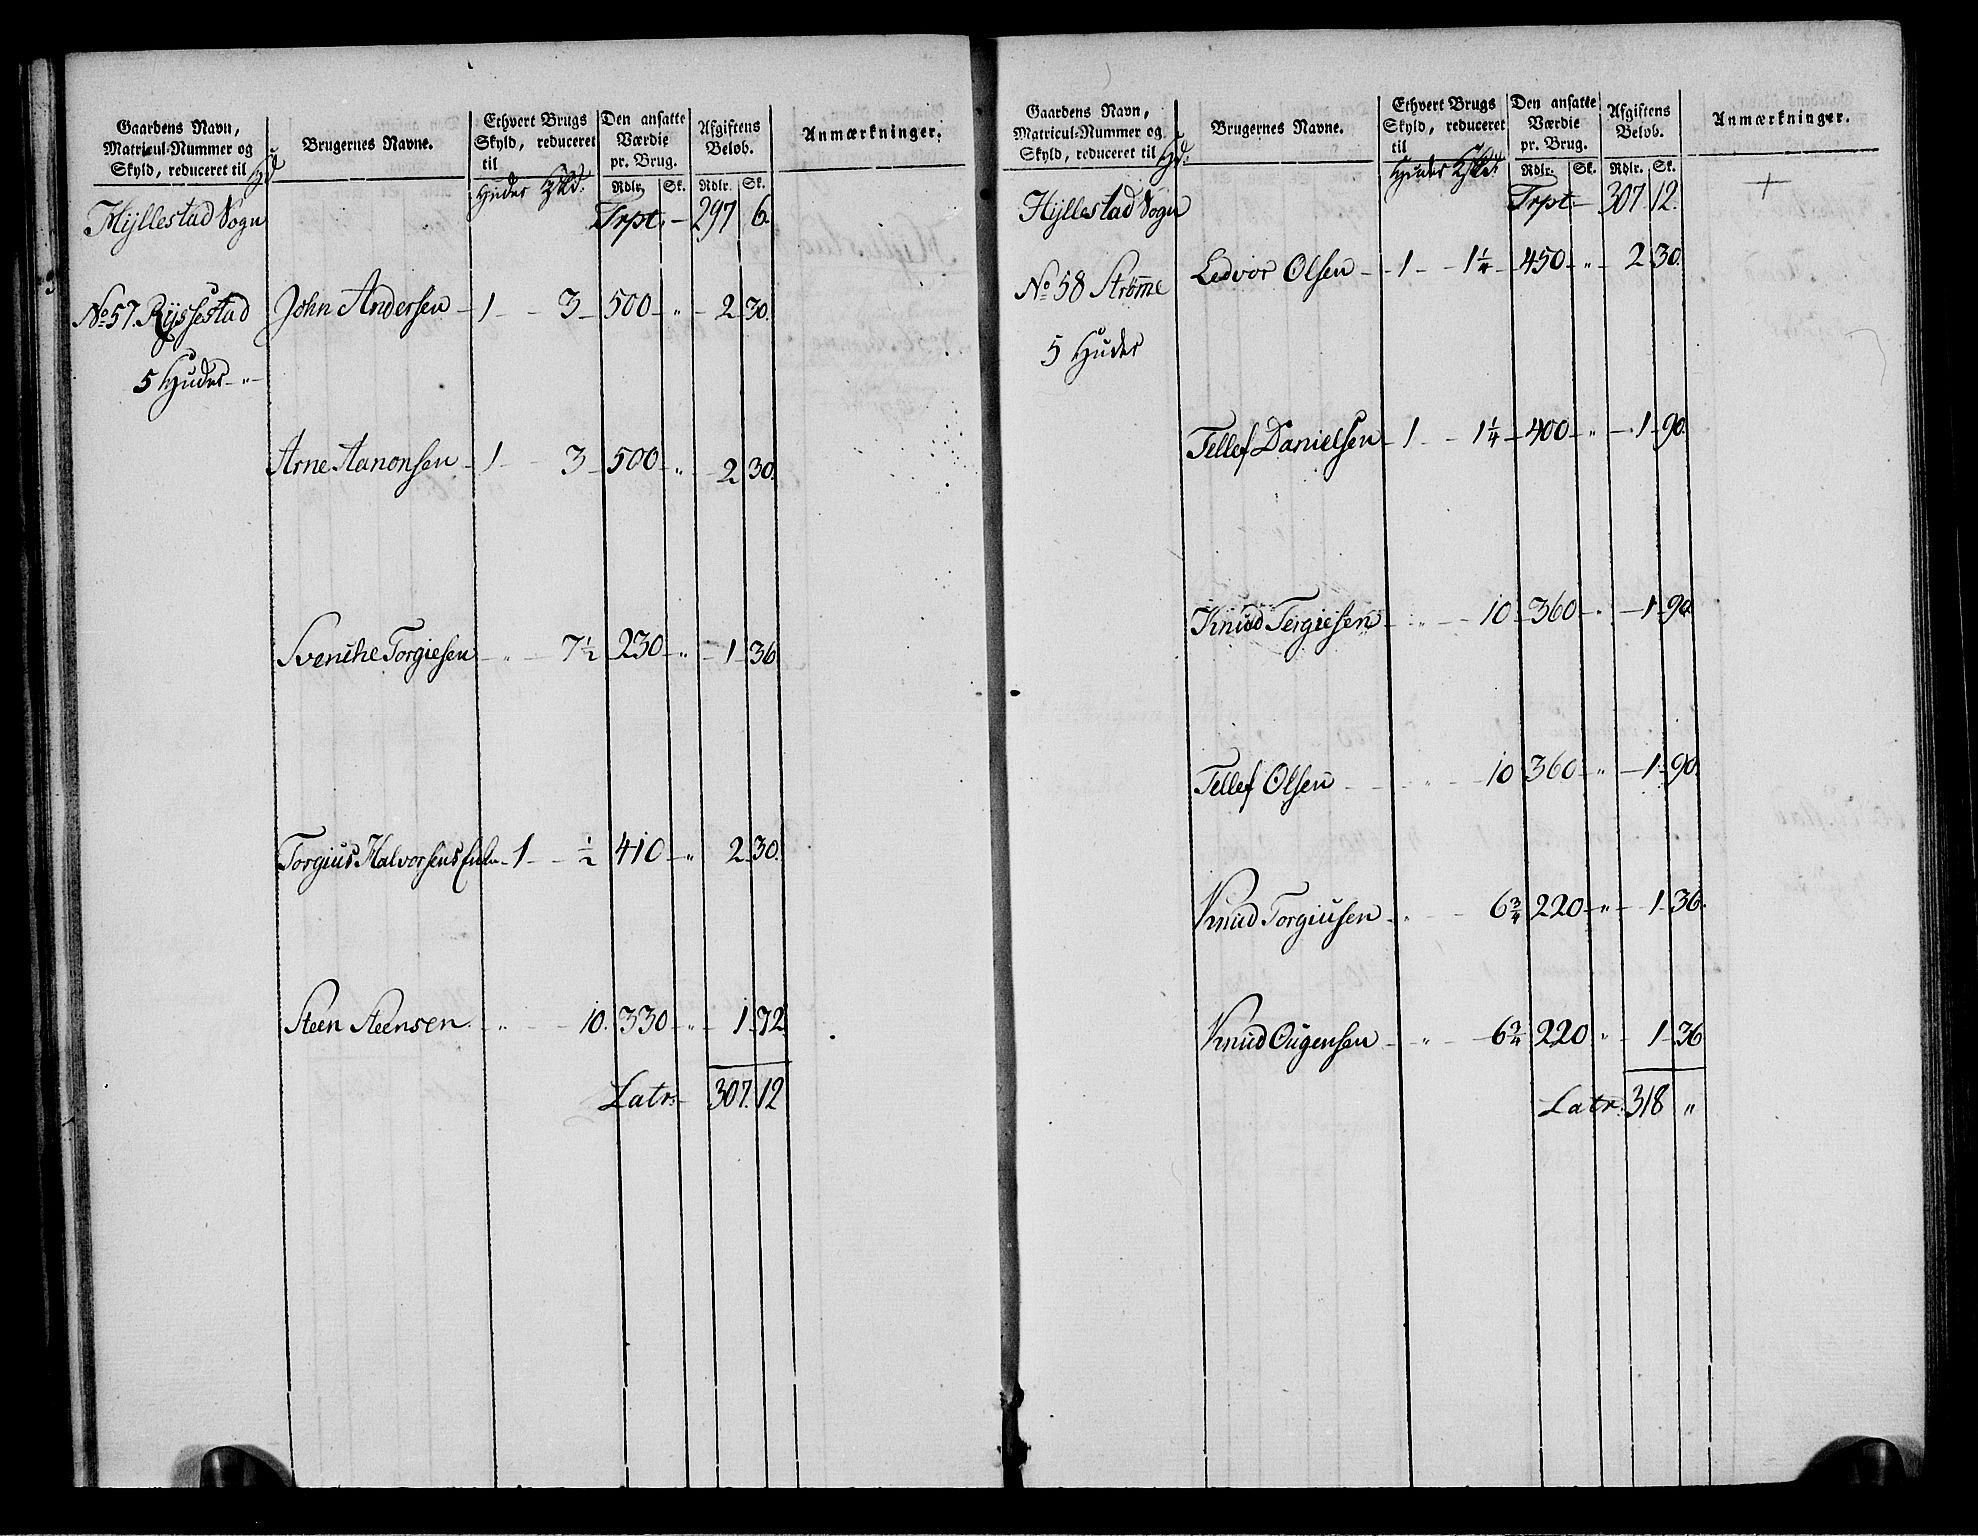 Gaardens Navn, Matricul-Nummer og Skyld, reduceret til Hd
Brugernes Navne.
Ethvert Brugs Skyld, reduceret til Huder
Den ansatte Værdie pr. Brug.
Afgiftens Beløb.
Anmærkninger.
Rdlr. Sk. Rdlr. Sk.
Hyllestad Sogn Trpt. – 297 6.
No 57. Ryssestad John Andersen – 1 – – 3 – 500 – " – 2 30.
5 Huder – " –
Arne Aanonsen – 1 – – 3 – 500 – " – 2 30.
Svenche Torgiesen – " – 7 1/2 230 – " – 1 36
Torgius Halvorsens – 1 – – 1/2 410 – " 2 30.
Steen Steensen. – " – – 10. 330 – " – 1 72
Latr: – 307. 12
Gaardens Navn, Matricul-Nummer og Skyld, reduceret til Hd:
Brugernes Navne.
Ethvert Brugs Skyld, reduceret til Huder
Den ansatte Værdie pr. Brug.
Afgiftens Beløb.
Anmærkninger.
Rdlr. Sk. Rdlr. Sk.
Hyllestad Sogn Trpt. – 307 12. +
No 58 Strømme Ledvor Olsen – 1 – – 1 1/4 – 450 – " – 2 30.
5 Huder
Tellef Danielsen – 1 – – 1 1/4 – 400 – " – 1 – 90.
Knud Tergiesen – " – – 10 – 360 – " – 1 – 90
Tellef Olsen – – " – 10 360 – " – 1 – 90.
Knud Torgiusen – " – – 6 3/4 220 – " – 1 – 36.
Knud Ougensen – " – – 6 3/4 220 " – 1 – 36
Latr: 318 "